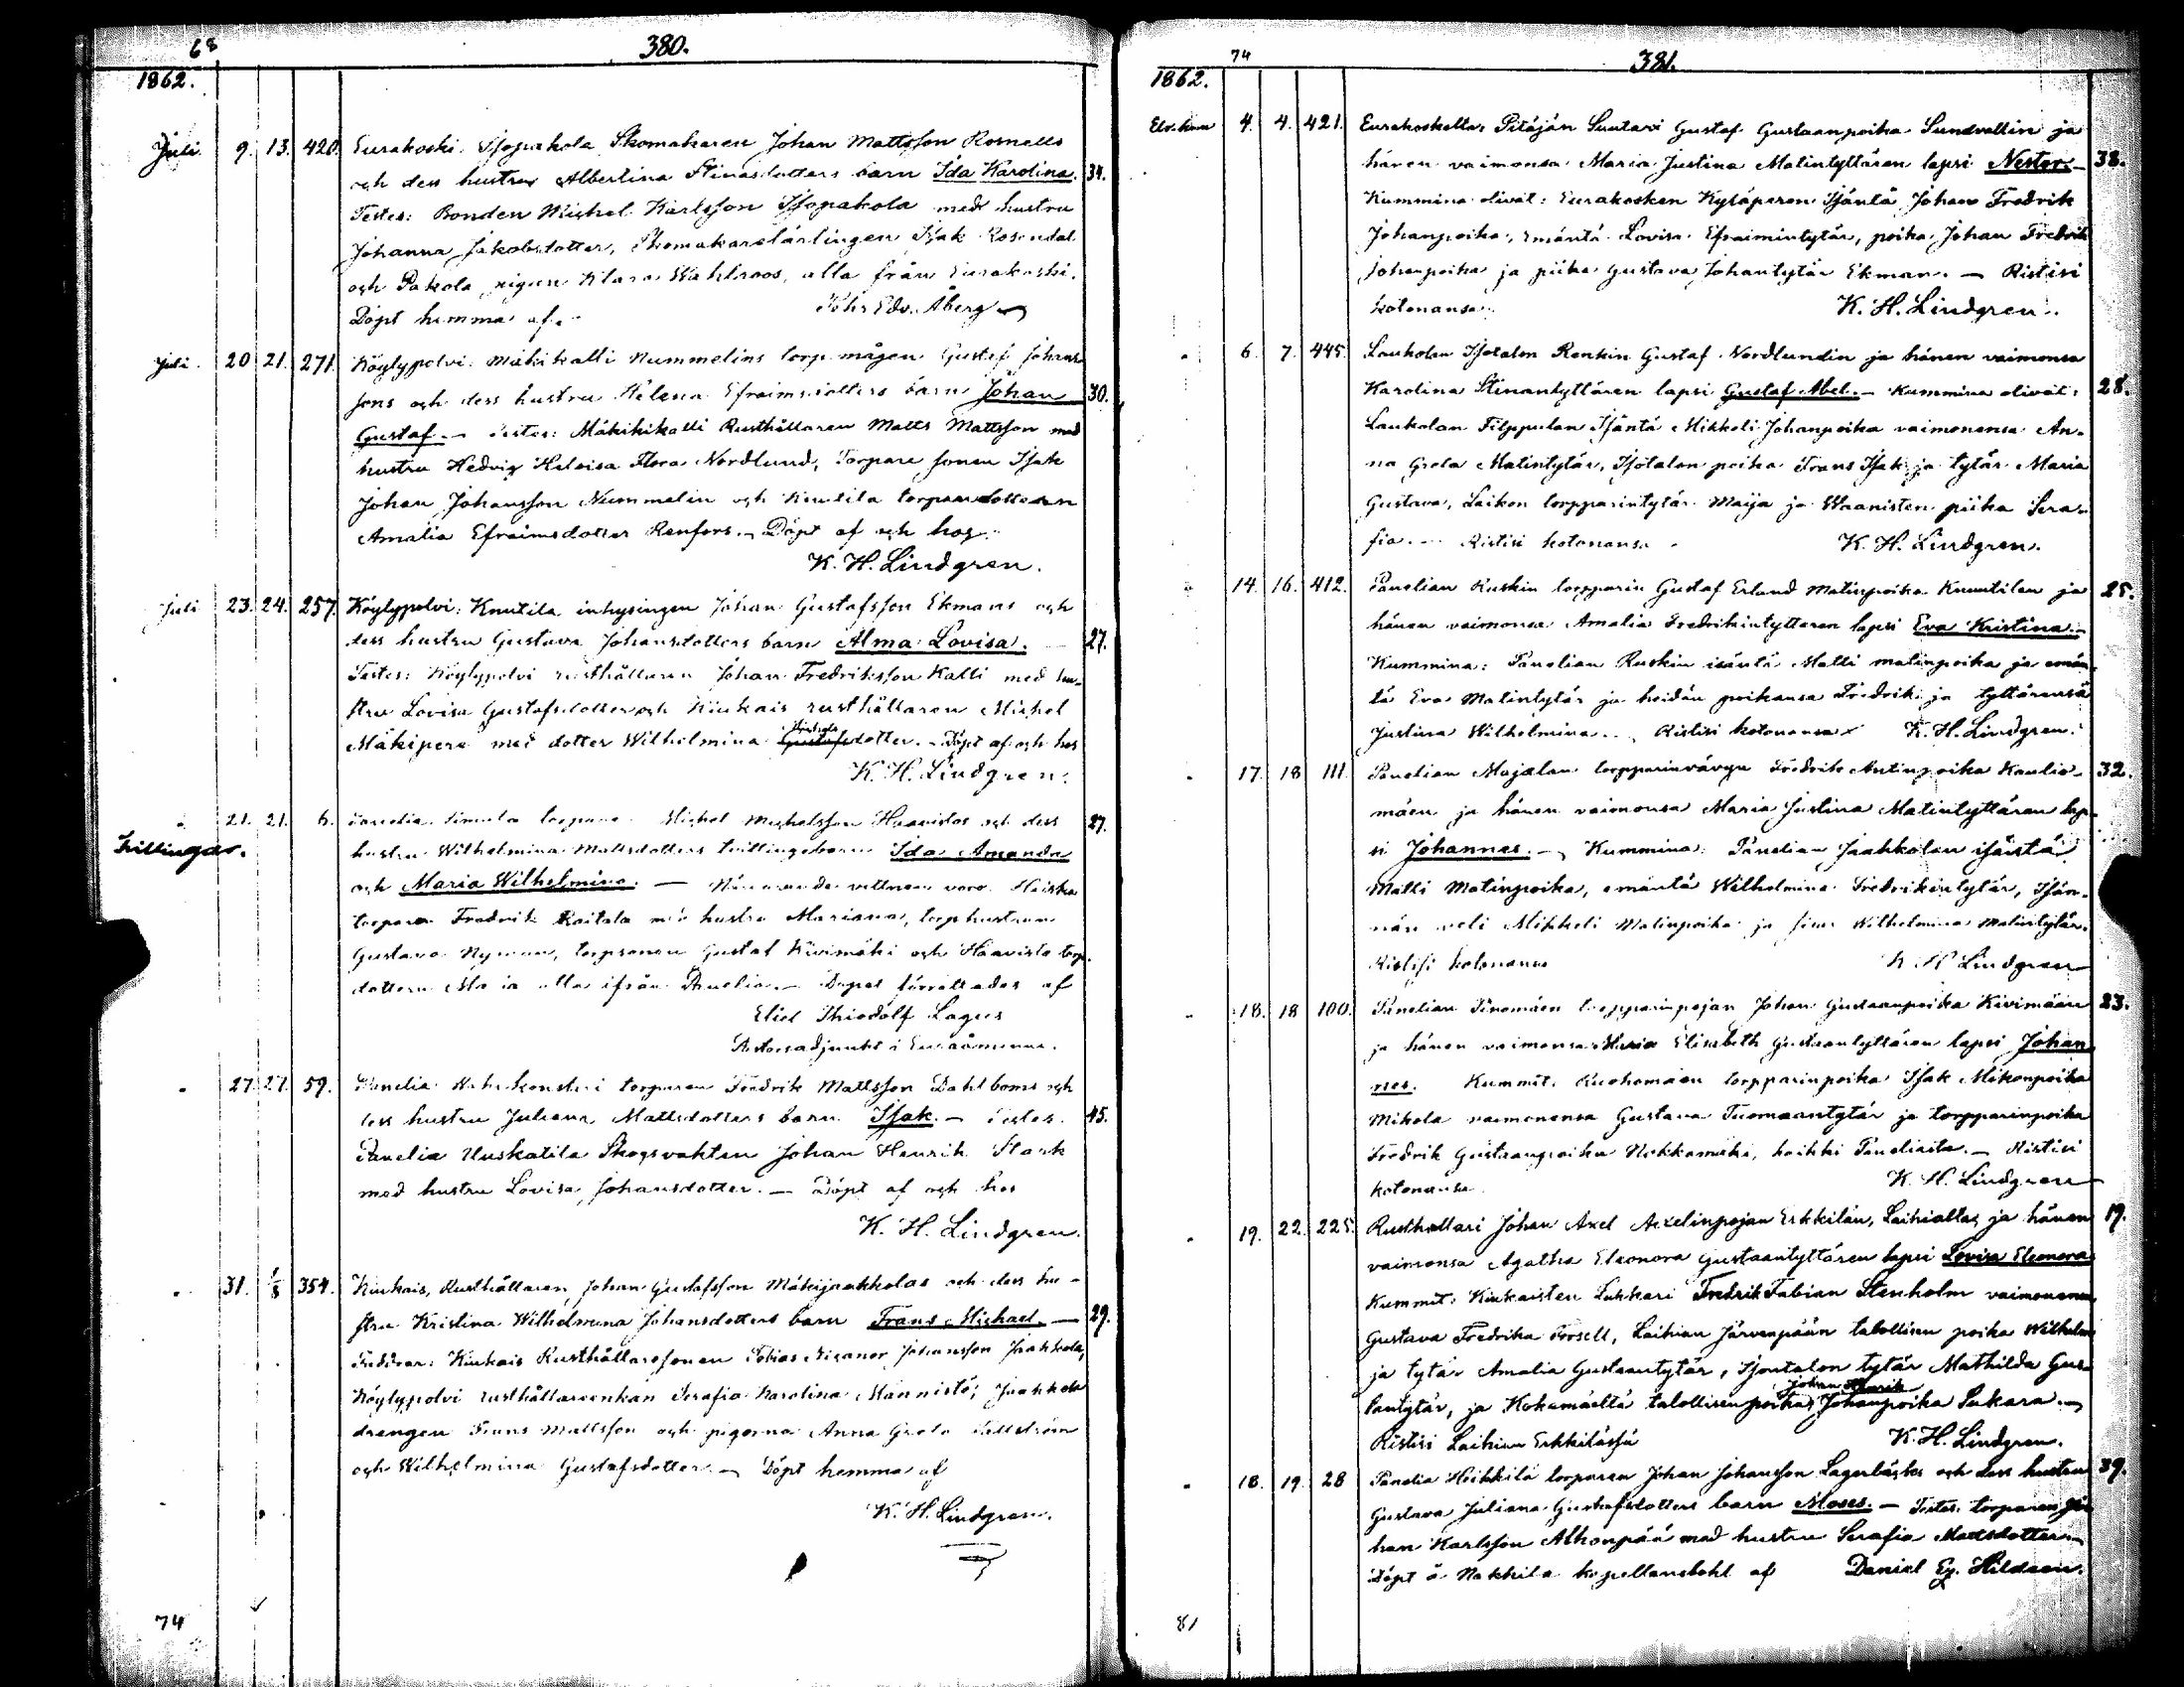 68
380.
1862.
Juli 9. 13. 420. Eurakoski. Isopakola Skomakaren Johan Mattsson Rosnells
och dess hustru Albertina Stinasdotters barn Ida Karolina. 34.
Testes: Bonden Michel Karlsson Isopakola med hustru
Johanna Jakobsdotter, Skomakarelärlingen Isak Rosendal
och Pakola pigan Klara Wahlroos, alla från Eurakoski.
Döpt hemma af. Joh: Edv. Åberg
Juli. 20 21. 271. Köylypolvi: Mäkikalli Nummelins torp mågen Gustaf Johans-
sons och dess hustru Helena Efraimsdotters barn Johan 30.
Gustaf. — Testes: Mäkikikalli Rusthållaren Matts Mattsson med
hustru Hedvig Heloisa Flora Nordlund, Torpare sonen Isak
Johan Johansson Nummelin och Knutila torparedottern
Amalia Efraimsdotter Renfors. — Döpt af och hos
K. H. Lindgren.
Juli 23. 24. 257. Köylypolvi: Knutila inhysingen Johan Gustafsson Ekmans och
dess hustru Gustava Johansdotters barn Alma Lovisa. 27.
Testes: Köylypolvi rusthållaren Johan Fredriksson Kalli med hu-
stru Lovisa Gustafsdotter och Kiukais rusthållaren Michel
Mäkipere med dotter Wilhelmina Gustafsdotter. — Döpt af och hos
K. H. Lindgren.
21. 21. 6. Panelia Simula torpare Michel Michelsson Haavistos och dess 27.
Tvillingar. hustru Wilhelmina Mattsdotters tvillingebarn Ida Amanda
och Maria Wilhelmina. — Närvarande vittnen voro Heiska
torparen Fredrik Raitala med hustru Mariana, torp hustrun
Gustava Nyman, torpsonen Gustaf Kivimäki och Haavisto torp.
dottern Maria alla ifrån Panelia. — Dopet förrättades af
Eliel Thiodolf Lagus
Pastorsadjunkt i Euraåminne.
27. 27. 59. Panelia torparen Fredrik Mattsson Dahlboms och
dess hustru Juliana Mattsdotters barn Isak. — Testes. 45.
Panelia Uuskatila Skogsvakten Johan Henrik Stark
med hustru Lovisa Johansdotter. — Döpt af och hos
K. H. Lindgren.
31. 1/8 354. Kiukais, Rusthållaren Johan Gustafsson Mäkijaakkolas och dess hu-
stru Kristina Wilhelmina Johansdotters barn Frans Michael. — 29.
Faddrar: Kiukais Rusthållaresonen Tobias Nicanor Johansson Jaakkola,
Köylypolvi rusthållareenkan Serafia Karolina Männistö, Jaakkola
drängen Frans Mattsson och pigorna Anna Greta Sällström
och Wilhelmina Gustafsdotter. — Döpt hemma af
K. H. Lindgren.
74
74
381.
1862.
4. 4. 421. Eurakoskelta: Pitäjän Suutari Gustaf Gustaanpoika Sundvallin ja
hänen vaimonsa Maria Justina Matintyttären lapsi Nestor. — 38.
Kummina olivat: Eurakosken Kyläperen Isäntä Johan Fredrik
Johanpoika, emäntä Lovisa Efraimintytär, poika Johan Fredrik
Johanpoika ja piika Gustava Johantytär Ekman. — Ristisi
kotonansa. K. H. Lindgren.
6. 7. 445. Laukolan Isotalon Renkin Gustaf Nordlundin ja hänen vaimonsa
Karolina Stinantyttären lapsi Gustaf Abel. — Kummina olivat: 28.
Laukolan Filppulan Isäntä Mikkeli Johanpoika vaimonensa An-
na Greta Matintytär, Isotalon poika Frans Isak ja tytär Maria
Gustava, Laikon torpparintytär Maija ja Waanisten piika Sera-
fia. — Ristisi kotonansa K. H. Lindgren.
14. 16. 412. Panelian Ruskin torpparin Gustaf Erland Matinpoika Knuutilan ja 25.
hänen vaimonsa Amalia Fredrikintyttären lapsi Eva Kristina. —
Kummina: Panelian Ruskin isäntä Matti Matinpoika ja emän-
tä Eva Matintytär ja heidän poikansa Fredrik ja tyttärensä
Justina Wilhelmina. Ristisi kotonansa K. H. Lindgren.
17. 18 111. Panelian Majalan torpparinvävyn Fredrik Antinpoika Kaulia- 32.
mäen ja hänen vaimonsa Maria Justina Matintyttären lap-
si Johannes. — Kummina: Panelian Jaakkolan isäntä
Matti Matinpoika, emäntä Wilhelmina Fredrikintytär, Isän-
nän veli Mikkeli Matinpoika ja Wilhelmina Matintytär.
Ristisi kotonansa K. H. Lindgren
18. 18 100. Panelian torpparinpojan Johan Gustaanpoika Kivimäen 23.
ja hänen vaimonsa Maria Elisabeth Gustaantyttären lapsi Johan-
nes. Kummit: Ruohomäen torpparinpoika Isak Mikonpoika
Mikola vaimonensa Gustava Tuomaantytär ja torpparinpoika
Fredrik Gustaanpoika Nokkamäki, kaikki Paneliasta. — Ristisi
kotonansa K. H. Lindgren
19. 22. 225. Rusthollari Johan Axel Axelinpojan Erkkilän, Laihialta, ja hänen 19.
vaimonsa Agatha Eleonora Gustaantyttären lapsi Lovisa Eleonora
Kummit: Kiukaisten Lukkari Fredrik Fabian Stenholm vaimonensa
Gustava Fredrika Forsell, Laihian Järvenpään talollisen poika Wilhelm
ja tytär Amalia Gustaantytär, Isontalon tytär Mathilda Gus-
Johan Henrik
taantytär, ja Kokemäeltä talollisen poika Johanpoika Sukara. —
Ristisi Laihian Erkkilässä K. H. Lindgren.
18. 19. 28 Panelia Heikkilä torparen Johan Johansson Lagerbäcks och dess hustru 39.
Gustava Juliana Gustafsdotters barn Moses. — Testes. torparen Jo-
han Karlsson Alhonpää med hustru Serafia Mattsdotter. —
Döpt å Nakkila kapellansbohl af Daniel Eg. Hildeen.
81